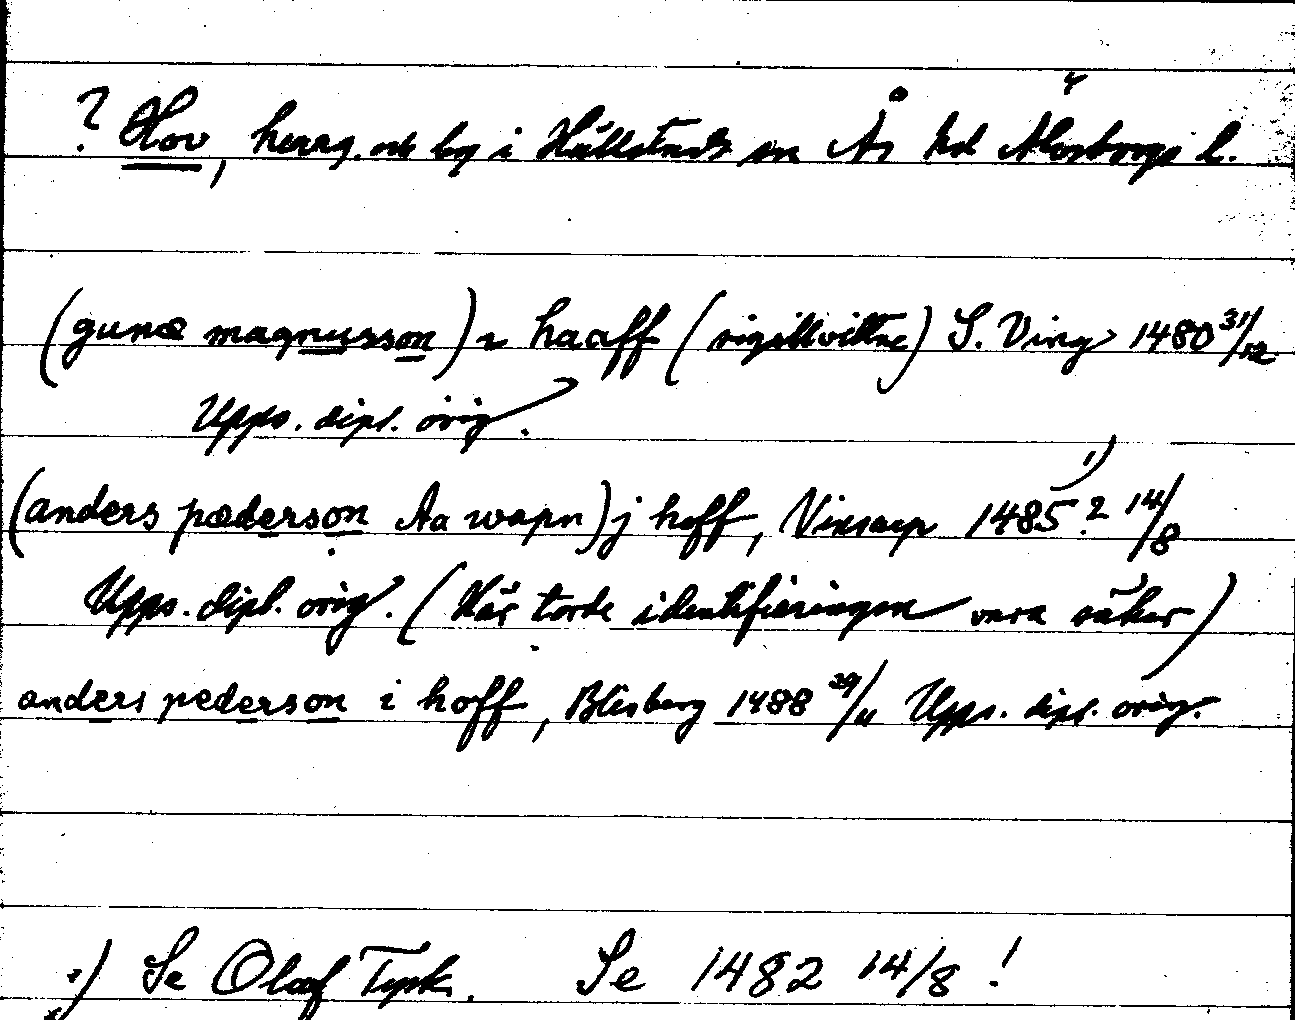 ? Hov, herrg. och by i Hällstads sn Ås hd Älvsborgs l.
(gunæ magnusson) i haaff (sigillvittne) S. Ving 1480 31/12
Upps. dipl. orig.
(anders pæderson Aa wapn) j hoff, Vixtorp 1485? 1) 14/8
Upps. dipl. orig. (Här torde identifieringen vara säker)
anders pederson i hoff, Blisberg 1488 29/11 Upps. dipl. orig.
1) Se Olaf Tysk. Se 1482 14/8!